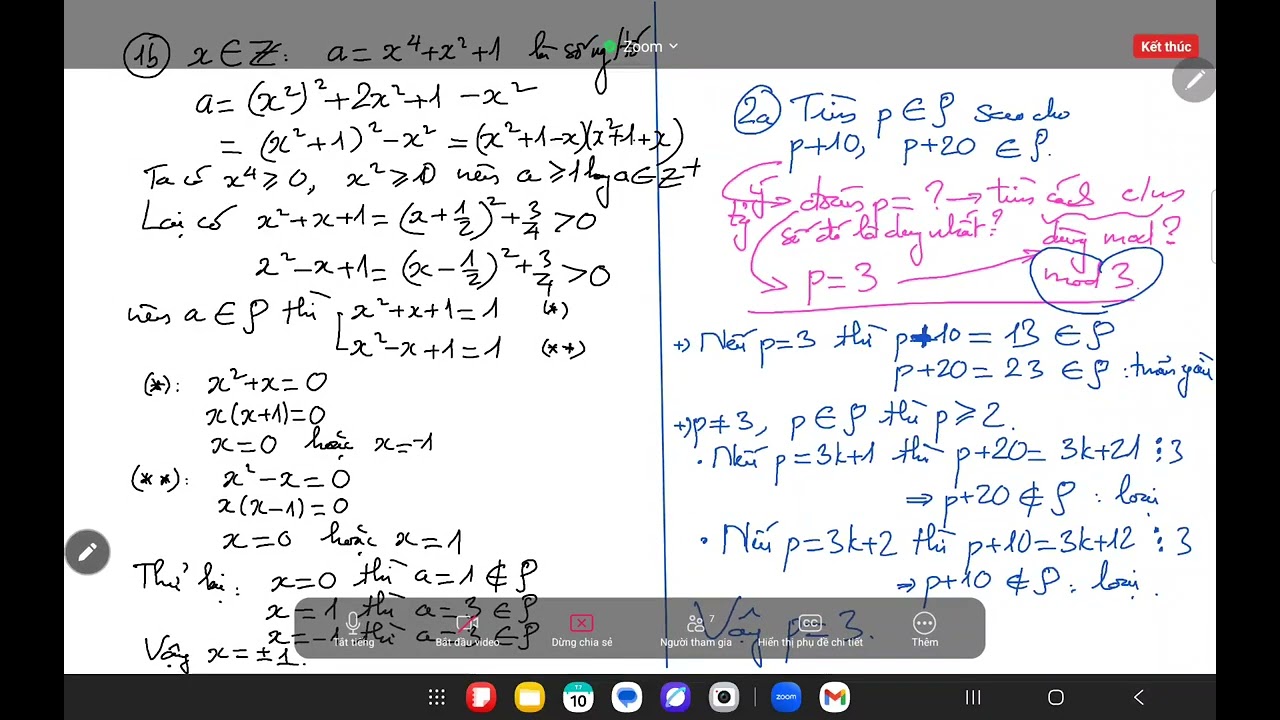 1b x ∈ Z: a = x⁴ + x² + 1 là số ng/tố
Zoom
Kết thúc
a = (x²)² + 2x² + 1 - x²
= (x² + 1)² - x² = (x² + 1 - x)(x² + 1 + x)
Ta có x⁴ ≥ 0, x² ≥ 0 nên a ≥ 1 hay a ∈ Z⁺
Lại có x² + x + 1 = (x + 1/2)² + 3/4 > 0
x² - x + 1 = (x - 1/2)² + 3/4 > 0
nên a ∈ P thì x² + x + 1 = 1 (*)
x² - x + 1 = 1 (**)
(*): x² + x = 0
x(x+1) = 0
x = 0 hoặc x = -1
(**): x² - x = 0
x(x-1) = 0
x = 0 hoặc x = 1
Thử lại: x = 0 thì a = 1 ∉ P
x = 1 thì a = 3 ∈ P
x = -1 thì a = 3 ∈ P
Vậy x = ±1.
2a Tìm p ∈ P sao cho
p+10, p+20 ∈ P.
ý đoán p = ? → tìm cách c/m
tg số đó là duy nhất? dùng mod?
p = 3 mod 3
+) Nếu p = 3 thì p+10 = 13 ∈ P
p+20 = 23 ∈ P: thỏa y/cầu
+) p ≠ 3, p ∈ P thì p ≥ 2.
• Nếu p = 3k+1 thì p+20 = 3k+21 ⋮ 3
⇒ p+20 ∉ P: loại
• Nếu p = 3k+2 thì p+10 = 3k+12 ⋮ 3
⇒ p+10 ∉ P: loại.
Vậy p = 3.
Tắt tiếng
Bắt đầu video
Dừng chia sẻ
7
Người tham gia
CC
Hiển thị phụ đề chi tiết
Thêm
T7
10
zoom